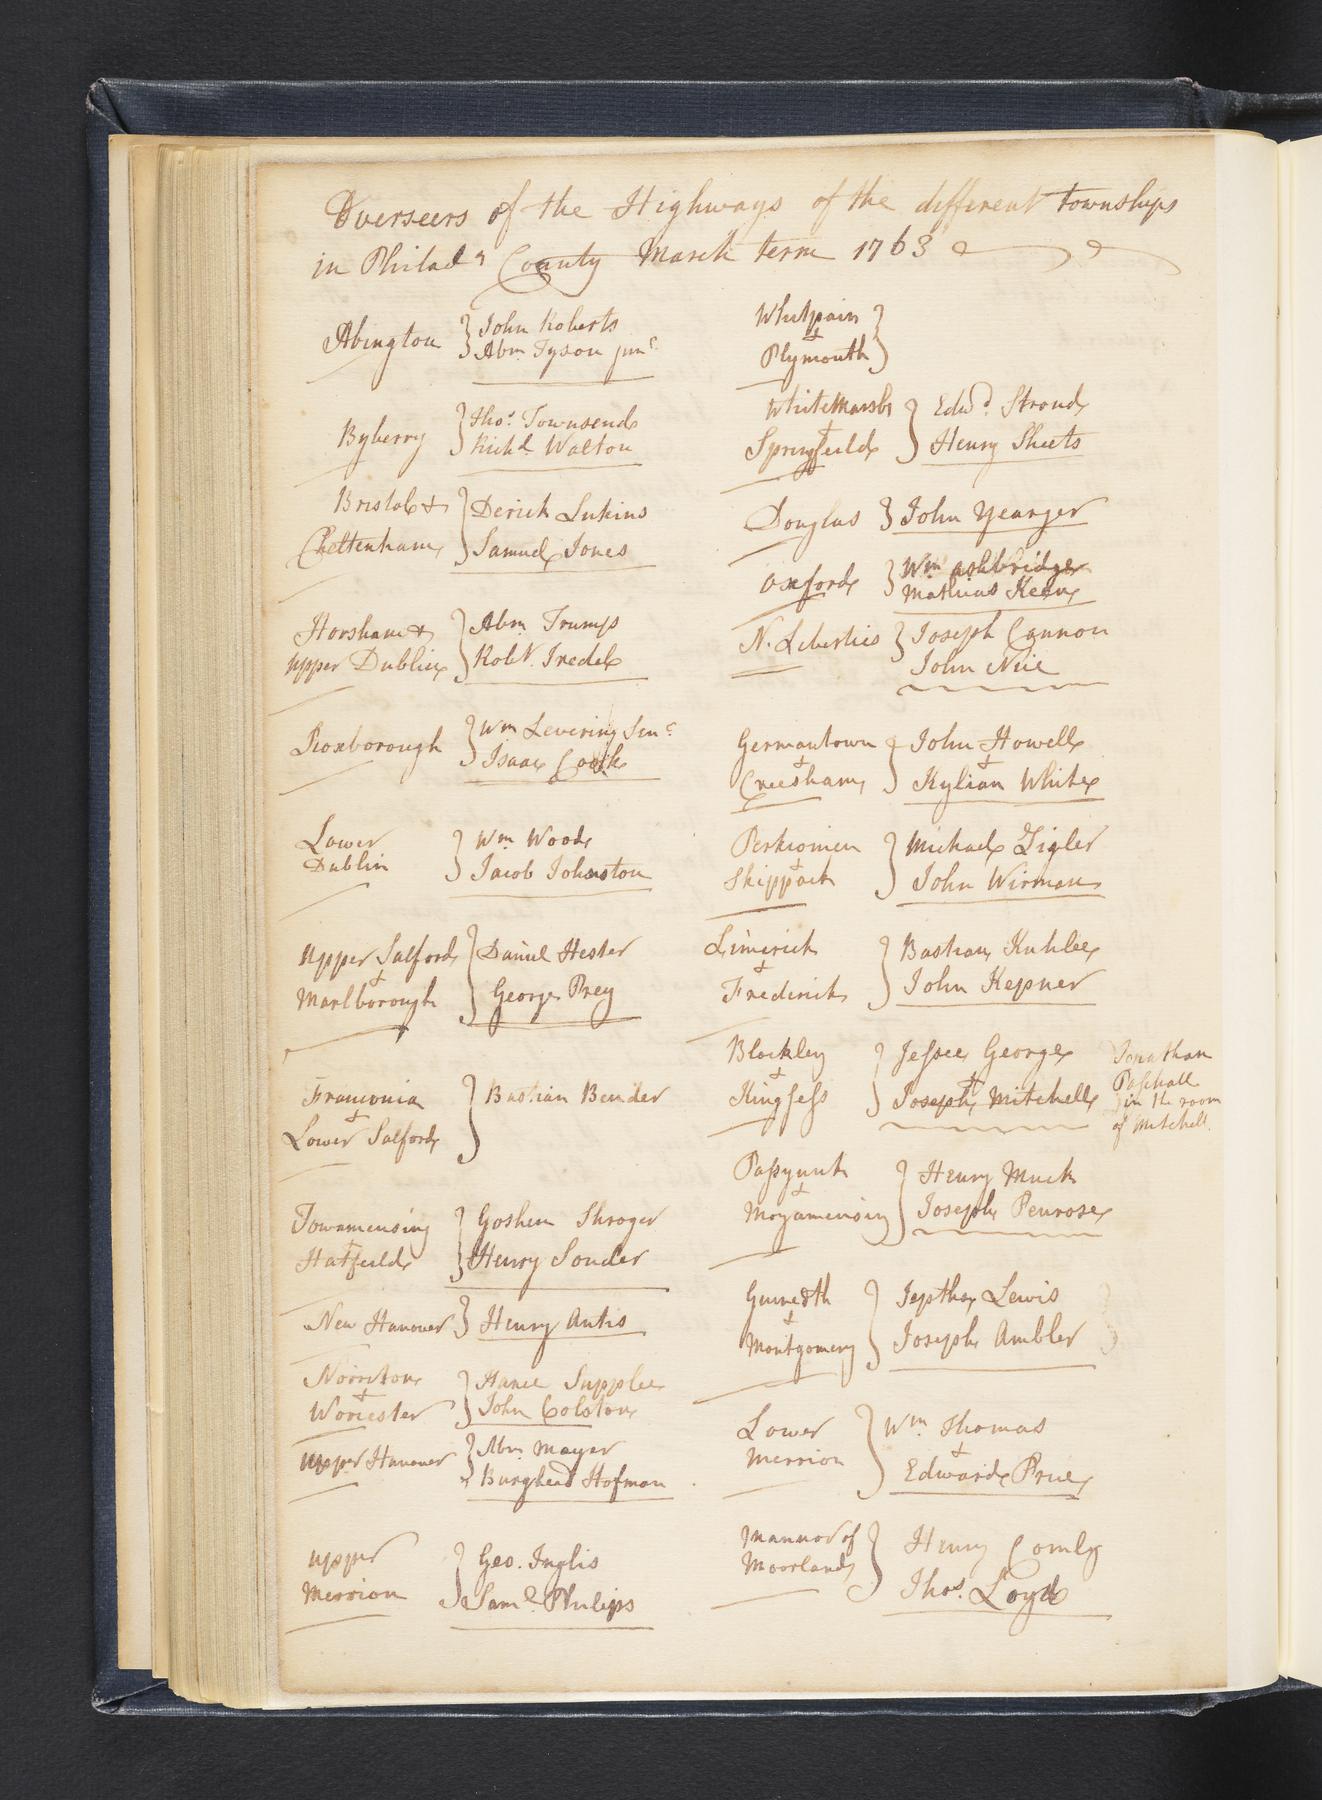 Overseers of the Highways of the different townships
in Philad.ª County March term 1763
Abington } John Roberts
Abm Tyson junr
Byberry } Thos Townsend
Richd Walton
Bristol & } Derick Lukins
Cheltenham } Samuel Jones
Horsham & } Abm Trump
upper Dublin } Robt. Iredel
Roxborough } Wm Levering Senr
Isaac Cook
Lower } Wm Wood
Dublin } Jacob Johnston
Upper Salford } Daniel Hester
&
Marlborough } George Prey
Franconia } Bastian Bender
&
Lower Salford
Towamensing } Goshen Shroger
&
Hatfeild } Henry Souder
New Hanover } Henry Antis
Norriton } Hance Supplee
&
Worcester } John Colston
Upper Hanover } Abm Mayer
Burghead Hofman
upper } Geo. Inglis
Merrion } Saml Philips
Whitpain }
&
Plymouth
WhiteMarsh } Edwd Stroud
&
Springfeild } Henry Sheets
Douglas } John Yearger
Oxford } Wm ashbridge
Mathias Keen
N. Liberties } Joseph Cannon
John Nice
Germantown } John Howell
& &
Creesham } Kylian White
Perkiomen } Michael Zigler
&
Skippack } John Wirman
Limerick } Bastian Kuhlee
&
Frederick } John Kepner
Blockley } Jessee George
& &
Kingsess } Joseph Mitchell
Jonathan
Paschall
in the room
of Mitchell.
Passyunk } Henry Muck
&
Moyamensing } Joseph Penrose
Gwinedth } Jeptha Lewis
&
Montgomery } Joseph Ambler
Lower } Wm Thomas
&
Merrion } Edward Price
Mannor of } Henry Comly
Moorland } Thos. Loyd